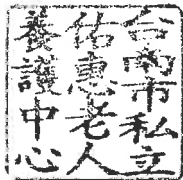 台南市私立
佑惠老人
養護中心